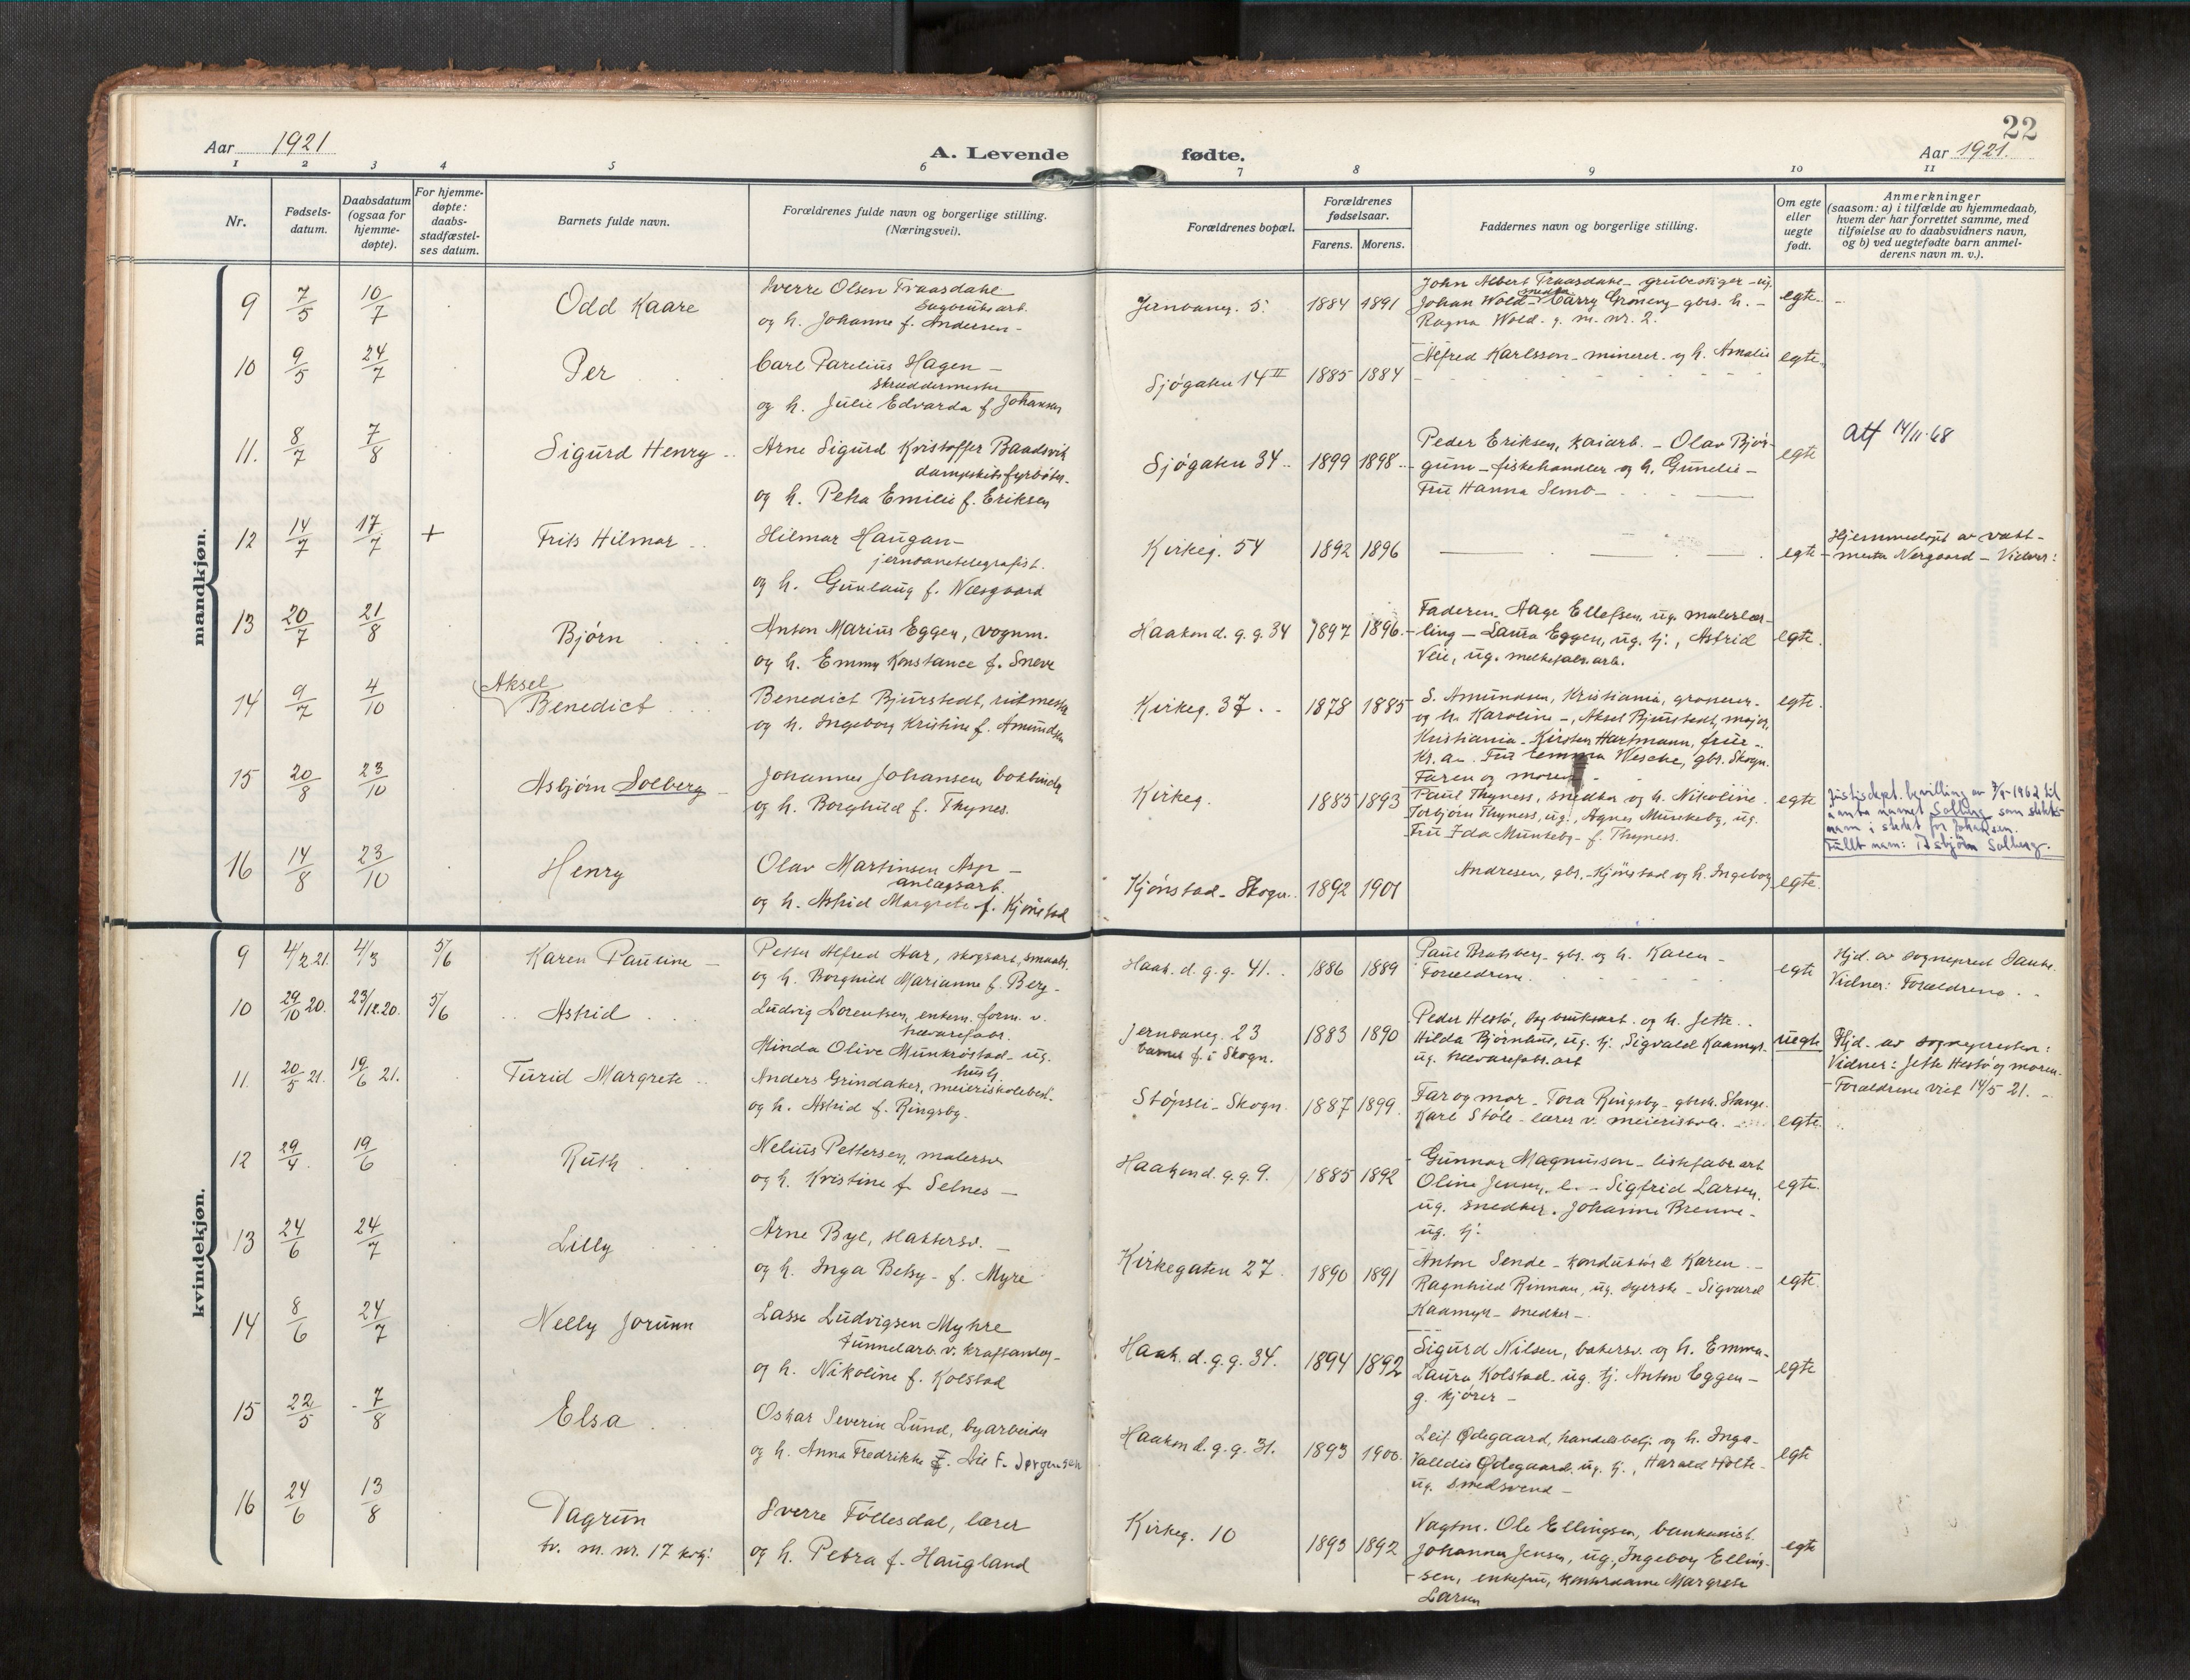 22
Aar 1921
A. Levende fødte.
Aar 1921.
1 2 3 4 5 6 7 8 9 10 11
Nr.
Fødsels-
datum.
Daabsdatum
(ogsaa for
hjemme-
døpte).
For hjemme-
døpte:
daabs-
stadfæstel-
ses datum.
Barnets fulde navn.
Forældrenes fulde navn og borgerlige stilling.
(Næringsvei).
Forældrenes bopæl.
Forældrenes
fødselsaar.
Farens. Morens.
Faddernes navn og borgerlige stilling.
Om egte
eller
uegte
født.
Anmerkninger
(saasom: a) i tilfælde av hjemmedaab,
hvem der har forrettet samme, med
tilføielse av to daabsvidners navn,
og b) ved uegtefødte barn anmel-
derens navn m. v.).
mandkjøn.
9 7/5 10/7 Odd Kaare
Sverre Olsen Traasdahl
Sagbruksarb.
og h. Johanne f. Andersen -
Jernbaneg. 5. 1884 1891
John Albert Traasdahl - grubestiger - ug.
Johan Wold - snedker Harry Grøneng - gbrs. h. -
Ragna Wold. g. m. nr. 2.
egte
10 9/5 24/7 Per
Carl Parelius Hagen -
skræddermester
og h. Julie Edvarda f. Johansen
Sjøgaten 14 II 1885 1884
Alfred Karlsson - minerer. og h. Amalie
egte
11. 8/7 7/8 Sigurd Henry
Arne Sigurd Kristoffer Baadsvik
dampskibsfyrbøter.
og h. Petra Emilie f. Eriksen
Sjøgaten 34 1899 1898
Peder Eriksen, kaiarb. - Olav Bjør-
gum - fiskehandler og h. Gunelie -
Fru Hanna Semb -
egte
Att 14/11-68
12 14/7 17/7 + Frits Hilmar
Hilmar Haugan -
jernbanetelegrafist.
og h. Gunlaug f. Næsgaard
Kirkeg. 54 1892 1896
egte
Hjemmedøpt av vakt-
mester Nergaard - Vidner:
13 20/7 21/8 Bjørn
Anton Marius Eggen, vognm.
og h. Emmy Konstance f. Sneve
Haakon d. g. g. 34 1897 1896.
Faderen, Aage Ellefsen, ug. malerlær-
ling - Laura Eggen, ug. tj., Astrid
Veie, ug. melkefabr. arb.
egte.
14 9/7 4/10 Aksel
Benedict
Benedict Bjurstedt, ritmester
og h. Ingeborg Kristine f. Amundsen
Kirkeg. 37. 1878 1885
S. Amundsen, Kristiania, grosserer
og h. Karoline -, Aksel Bjurstedt, major,
Kristiania - Kirsten Hartmann, frue -
Kr. a. - Fru Emma Wesche, gbr. Skogn.
Faren og moren
egte.
15 20/8 23/10 Asbjørn Solberg
Johannes Johansen, bokbinder
og h. Borghild f. Thynes.
Kirkeg. 1885 1893
Paul Thyness, snedker og h. Nikoline.
Torbjørn Thyness, ug., Agnes Munkeby, ug.
Fru Ida Munkeby - f. Thyness.
egte
Justisdept. bevilling av 7/9-1962 til
å anta navnet Solberg som slekts-
navn i stedet for Johansen.
Fullt navn: Asbjørn Solberg.
16 14/8 23/10 Henry
Olav Martinsen Asp -
anlægsarb.
og h. Astrid Margrete f. Kjønstad
Kjønstad - Skogn. 1892 1901
Andresen, gbr. - Kjønstad og h. Ingeborg
egte.
kvindekjøn.
9 4/2 21. 4/3 5/6 Karen Pauline -
Petter Alfred Aar, skogsarb., smaabr.
og h. Borghild Marianne f. Berg -
Haak. d. g. g. 41. 1886 1889
Paul Bratsberg - gbr. og h. Karen -
Forældrene.
egte
Hjd. av sogneprest Sande.
Vidner: Forældrene.
10 29/10 20. 23/12.20. 5/6 Astrid
Ludvig Lorentsen, enkem. form. v.
trævarefabr.
Minda Olive Munkrøstad - ug.
hustj.
Jernbaneg. 23
barnet f. i Skogn. 1883 1890
Peder Hestø, Sagbruksarb. og h. Jette.
Hilda Bjørnhus, ug. tj., Sigvald Kaamyr.
ug. trævarefabr. arb
uegte
Hjd. av sognepresten:
Vidner: Jette Hestø og moren -
Forældrene viet 14/5 21. -
11. 20/5 21. 19/6 21. Turid Margrete
Anders Grindaker, meieriskolebest.
og h. Astrid f. Ringsby.
Støpsli - Skogn. 1887 1899.
Far og mor - Tora Ringsby - gbrsk. Stange.
Karl Støle - lærer v. meieriskol.
egte.
12 29/4. 19/6 Ruth
Nelius Pettersen, malersv.
og h. Kristine f. Selnes -
Haakon d. g. g. 9. 1885 1892
Gunnar Magnusson - listefabr. arb
Oline Jensen, e. - Sigfrid Larsen,
ug. snedker. Johanne Brenne -
ug. tj.
egte.
13 24/6 24/7 Lilly
Arne Bye, slaktersv. -
og h. Inga Betsy - f. Myre
Kirkegaten 27. 1890 1891
Anton Sende - konduktør & Karen -
Ragnhild Rinnan, ug. syerske - Sigvard
Kaamyr - snedker -
egte.
14 8/6 24/7 Nelly Jorunn
Lasse Ludvigsen Myhre
tunnelarb. v. kraftanlæg -
og h. Nikoline f. Kolstad
Haak. d. g. g. 34. 1894 1892
Sigurd Nilsen, bakersv. og h. Emma -
Laura Kolstad - ug. tj. Anton Eggen -
g. kjører -
egte
15 22/5 7/8 Elsa
Oskar Severin Lund, byarbeider
og h. Anna Fredrikke f. Lie F. Jørgensen
Haakon d. g. g. 31. 1893 1900.
Leif Ødegaard, handelsbetj. og h. Inga -
Valldis Ødegaard, ug. tj., Harald Holte -
ug. smedsvend -
egte
16 24/6 13/8 Dagrun
tv. m. nr. 17 kvkj.
Sverre Føllesdal, lærer
og h. Petra f. Haugland
Kirkeg. 10 1893 1892
Vagtm. Ole Ellingsen, bankassist.
Johanna Jensen, ug., Ingeborg Elling-
sen, enkefru, kontordame Margrete
Larsen
egte